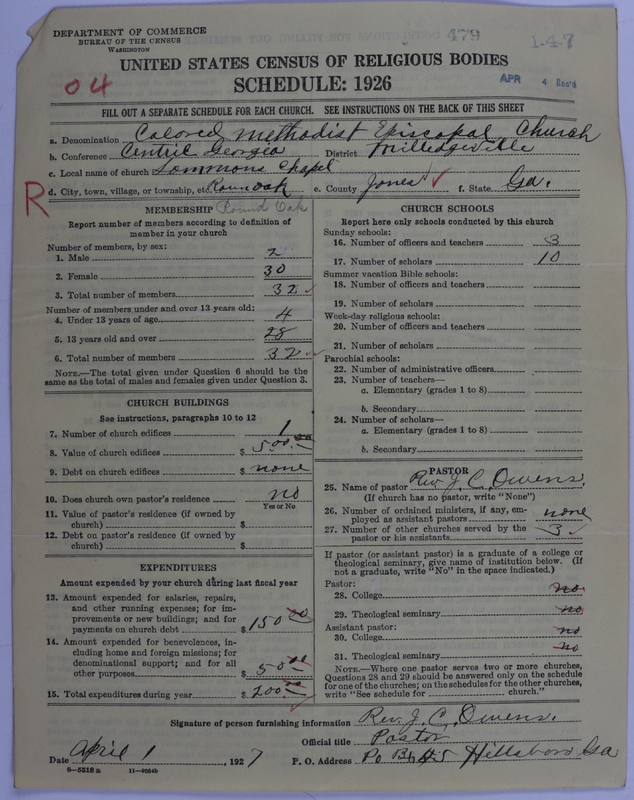 DEPARTMENT OF COMMERCE
BUREAU OF THE CENSUS
WASHINGTON
479
1-4-7
UNITED STATES CENSUS OF RELIGIOUS BODIES
SCHEDULE: 1926
APR 4 Rec'd
04
FILL OUT A SEPARATE SCHEDULE FOR EACH CHURCH. SEE INSTRUCTIONS ON THE BACK OF THIS SHEET
a. Denomination Colored Methodist Episcopal Church
b. Conference Centril Georgia District Milledgeville
c. Local name of church Lommons Chapel
R d. City, town, village, or township, etc. Rounoak e. County Jones f. State Ga.
MEMBERSHIP Round Oak
Report number of members according to definition of member in your church
Number of members, by sex:
1. Male 2
2. Female 30
3. Total number of members 32
Number of members under and over 13 years old:
4. Under 13 years of age 4
5. 13 years old and over 28
6. Total number of members 32
NOTE.—The total given under Question 6 should be the same as the total of males and females given under Question 3.
CHURCH BUILDINGS
See instructions, paragraphs 10 to 12
7. Number of church edifices 1
8. Value of church edifices $ 500.00
9. Debt on church edifices $ none
10. Does church own pastor's residence no
Yes or No
11. Value of pastor's residence (if owned by church) $
12. Debt on pastor's residence (if owned by church) $
EXPENDITURES
Amount expended by your church during last fiscal year
13. Amount expended for salaries, repairs, and other running expenses; for improvements or new buildings; and for payments on church debt $ 150 00
14. Amount expended for benevolences, including home and foreign missions; for denominational support; and for all other purposes $ 50 00
15. Total expenditures during year $ 200.00
CHURCH SCHOOLS
Report here only schools conducted by this church
Sunday schools:
16. Number of officers and teachers 3
17. Number of scholars 10
Summer vacation Bible schools:
18. Number of officers and teachers
19. Number of scholars
Week-day religious schools:
20. Number of officers and teachers
21. Number of scholars
Parochial schools:
22. Number of administrative officers
23. Number of teachers—
a. Elementary (grades 1 to 8)
b. Secondary
24. Number of scholars—
a. Elementary (grades 1 to 8)
b. Secondary
PASTOR
25. Name of pastor Rev. J. C. Owens.
(If church has no pastor, write "None")
26. Number of ordained ministers, if any, employed as assistant pastors none
27. Number of other churches served by the pastor or his assistants 3
If pastor (or assistant pastor) is a graduate of a college or theological seminary, give name of institution below. (If not a graduate, write "No" in the space indicated.)
Pastor:
28. College no
29. Theological seminary no
Assistant pastor:
30. College no
31. Theological seminary no
NOTE.—Where one pastor serves two or more churches, Questions 28 and 29 should be answered only on the schedule for one of the churches; on the schedules for the other churches, write "See schedule for church."
Signature of person furnishing information Rev. J. C. Owens.
Official title Pastor
Date April 1, 1927 P. O. Address Po Hillsboro Ga
6—5518 a 11—9264b